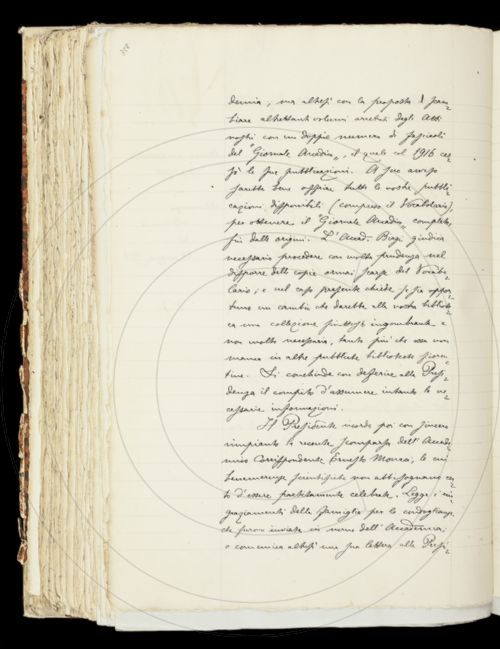 demia, ma altresì con la proposta di scam-
biare altrettanti volumi arretrati degli Atti
nostri con un doppio numero di fascicoli
del "Giornale Arcadico", il quale col 1916 ces-
sò le sue pubblicazioni. A suo avviso
sarebbe bene offrire tutte le nostre pubbli-
cazioni disponibili (compreso il Vocabolario),
per ottenere il "Giornale Arcadico" completo
fin dalle origini. L'Accad. Biagi giudica
necessario procedere con molta prudenza nel
disporre delle copie ormai scarse del Vocabo-
lario; e nel caso presente chiede se sia oppor-
tuno un cambio che darebbe alla nostra bibliote-
ca una collezione piuttosto ingombrante e
non molto necessaria, tanto più che essa non
manca in altre pubbliche biblioteche fioren-
tine. Si conclude con deferire alla Presi-
denza il compito d'assumere intanto le ne-
cessarie informazioni.
Il Presidente ricorda poi con sincero
rimpianto la recente scomparsa dell'Accade-
mico Corrispondente Ernesto Monaci, le cui
benemerenze scientifiche non abbisognano cer-
to d'essere partitamente celebrate. Legge i rin-
graziamenti della famiglia per le condoglianze
che furono inviate in nome dell'Accademia,
e comunica altresì una sua lettera alla Presi-